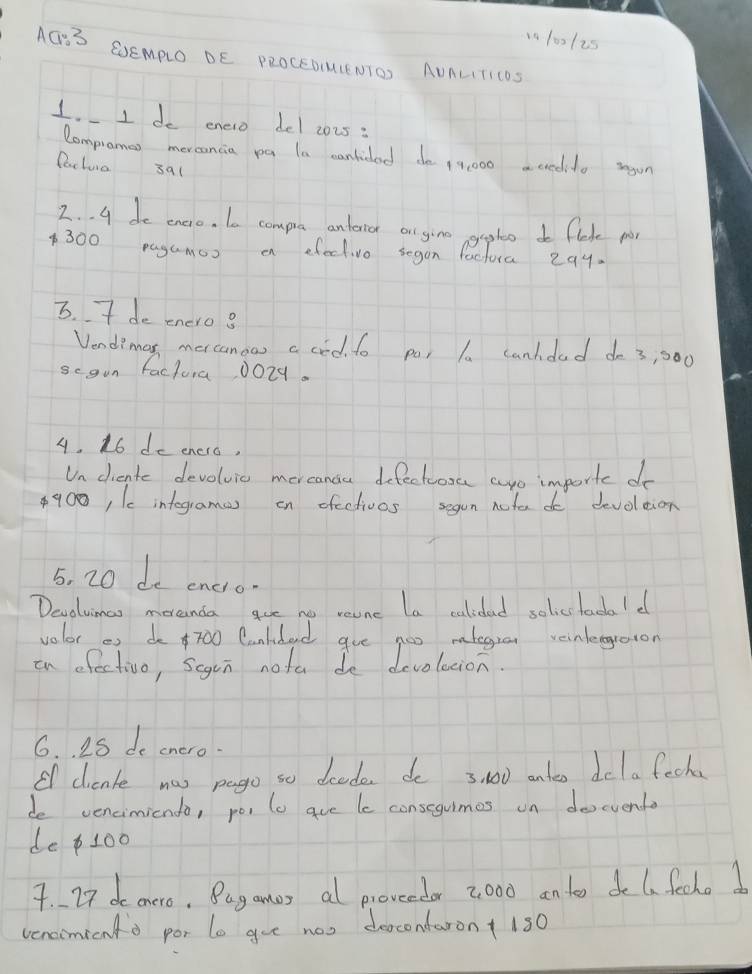 Act:3 EJEMPLO DE PROCEDIMIENTOS ANALITICOS
19/02/25
1.- 1 de enero del 2025:
Compramos mercancia pa la cantidad de $9,000 a credito segun
factura 391
2.-4 de enero. la compra anterior origino gastos de flete por
$300 pagamos en efectivo segun factura 294.
3.-7 de enero:
Vendimos mercancias a credito por la cantidad de 3,500
segun factura 0024.
4. 16 de enero.
Un cliente devolvio mercancia defectuosa cuyo importe de
$400, le integramos en efectivos segun nota de devolcion
5. 20 de enero-
Devolvimos mercancia que no reune la calidad solicitada l el
valor es de $700 Cantidad que nos reintegraron
en efectivo, según nota de devolución.
6. .25 de enero-
El cliente nos pago su deuda de 3,100 antes de la fecha
de vencimiento, por lo que le conseguimos un descuento
de $100
7.-27 de enero. Pagamos al proveedor 2,000 antes de la fecha d
vencimiento por lo que nos descontaron $ 150